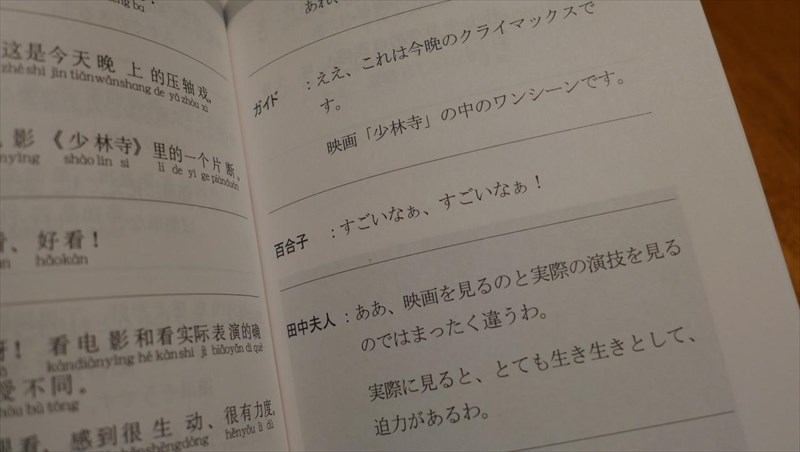 这是今天晚上的压轴戏,
zhèshì jīntiānwǎnshang de yāzhòu xì
影《少林寺》里的一个片断。
yǐng shàolín sì lǐ de yī ge piànduàn
、好看!
hǎokàn
! 看电影和看实际表演的确
kàndiànyǐng hé kànshí jì biǎoyǎn dí què
不同。
bù tóng
看, 感到很生动、很有力度,
hěnshēngdòng hěnyǒu lì dù
ガイド :ええ、これは今晩のクライマックスで
す。
映画「少林寺」の中のワンシーンです。
百合子 :すごいなぁ、すごいなぁ!
田中夫人 :ああ、映画を見るのと実際の演技を見る
のではまったく違うわ。
実際に見ると、とても生き生きとして、
迫力があるわ。